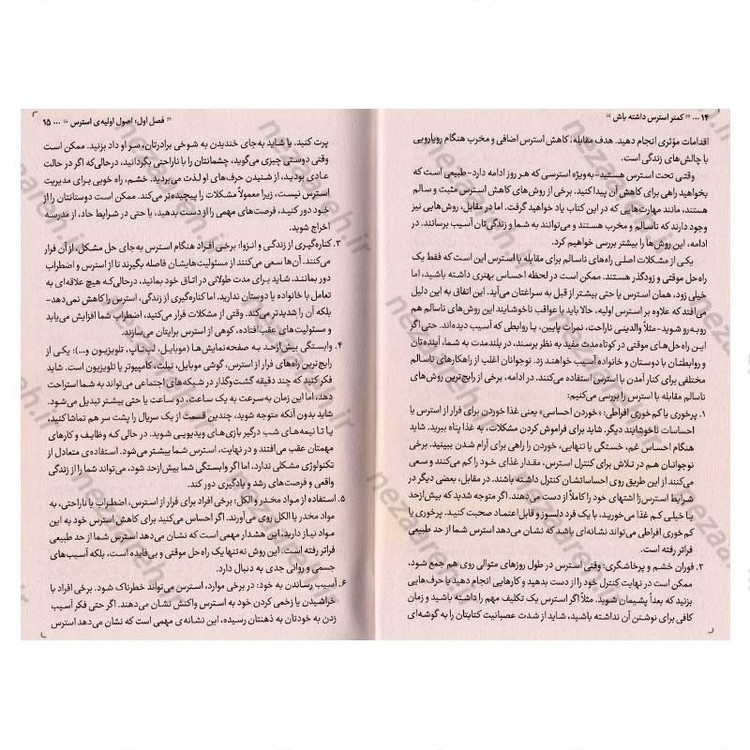 ۱۴ ... " کمتر استرس داشته باش "
اقدامات مؤثری انجام دهید. هدف مقابله، کاهش استرس اضافی و مخرب هنگام رویارویی
با چالش‌های زندگی است.
وقتی تحت استرس هستید-به‌ویژه استرسی که هر روز ادامه دارد-طبیعی است که
بخواهید راهی برای کاهش آن پیدا کنید. برخی از روش‌های کاهش استرس مثبت و سالم
هستند، مانند مهارت‌هایی که در این کتاب یاد خواهید گرفت. اما در مقابل، روش‌هایی نیز
وجود دارند که ناسالم و مخرب هستند و می‌توانند به شما و زندگی‌تان آسیب برسانند. در
ادامه، این روش‌ها را بیشتر بررسی خواهیم کرد.
یکی از مشکلات اصلی راه‌های ناسالم برای مقابله با استرس این است که فقط یک
راه‌حل موقتی و زودگذر هستند. ممکن است در لحظه احساس بهتری داشته باشید، اما
خیلی زود، همان استرس یا حتی بیشتر از قبل به سراغتان می‌آید. این اتفاق به این دلیل
می‌افتد که علاوه بر استرس اولیه، حالا باید با عواقب ناخوشایند این روش‌های ناسالم هم
روبه‌رو شوید-مثلاً والدینی ناراحت، نمرات پایین، یا روابطی که آسیب دیده‌اند. حتی اگر
این راه‌حل‌های موقتی در کوتاه‌مدت مفید به نظر برسند، در بلندمدت به شما، آینده‌تان
و روابطتان با دوستان و خانواده آسیب خواهند زد. نوجوانان اغلب از راهکارهای ناسالم
مختلفی برای کنار آمدن با استرس استفاده می‌کنند. در ادامه، برخی از رایج‌ترین روش‌های
ناسالم مقابله با استرس را بررسی می‌کنیم:
۱. پرخوری یا کم‌خوری افراطی: «خوردن احساسی» یعنی غذا خوردن برای فرار از استرس یا
احساسات ناخوشایند دیگر. شاید برای فراموش کردن مشکلات، به غذا پناه ببرید. شاید
هنگام احساس غم، خستگی یا تنهایی، خوردن را راهی برای آرام شدن ببینید. برخی
نوجوانان هم در تلاش برای کنترل استرس، مقدار غذای خود را کم می‌کنند و سعی
می‌کنند از این طریق روی احساساتشان کنترل داشته باشند. در مقابل، بعضی دیگر در
شرایط استرس‌زا اشتهای خود را کاملاً از دست می‌دهند. اگر متوجه شدید که بیش‌ازحد
یا خیلی کم غذا می‌خورید، با یک فرد دلسوز و قابل‌اعتماد صحبت کنید. پرخوری یا
کم‌خوری افراطی می‌تواند نشانه‌ای باشد که نشان می‌دهد استرس شما از حد طبیعی
فراتر رفته است.
۲. فوران خشم و پرخاشگری: وقتی استرس در طول روزهای متوالی روی هم جمع شود،
ممکن است در نهایت کنترل خود را از دست بدهید و کارهایی انجام دهید یا حرف‌هایی
بزنید که بعداً پشیمان شوید. مثلاً اگر استرس یک تکلیف مهم را داشته باشید و زمان
کافی برای نوشتن آن نداشته باشید، شاید از شدت عصبانیت کتابتان را به گوشه‌ای
" فصل اول: اصول اولیه‌ی استرس " ... ۱۵
پرت کنید. یا شاید به‌جای خندیدن به شوخی برادرتان، سر او داد بزنید. ممکن است
وقتی دوستی چیزی می‌گوید، چشمانتان را با ناراحتی بگردانید، درحالی‌که اگر در حالت
عادی بودید، از شنیدن حرف‌های او لذت می‌بردید. خشم، راه خوبی برای مدیریت
استرس نیست، زیرا معمولاً مشکلات را پیچیده‌تر می‌کند. ممکن است دوستانتان را از
خود دور کنید، فرصت‌های مهمی را از دست بدهید، یا حتی در شرایط حاد، از مدرسه
اخراج شوید.
۳. کناره‌گیری از زندگی و انزوا: برخی افراد هنگام استرس به‌جای حل مشکل، از آن فرار
می‌کنند. آن‌ها سعی می‌کنند از مسئولیت‌هایشان فاصله بگیرند تا از استرس و اضطراب
دور بمانند. شاید برای مدت طولانی در اتاق خود بمانید، درحالی‌که هیچ علاقه‌ای به
تعامل با خانواده یا دوستان ندارید. اما کناره‌گیری از زندگی، استرس را کاهش نمی‌دهد-
بلکه آن را شدیدتر می‌کند. وقتی از مشکلات فرار می‌کنید، اضطراب شما افزایش می‌یابد
و مسئولیت‌های عقب افتاده، کوهی از استرس برایتان می‌سازند.
۴. وابستگی بیش‌ازحد به صفحه‌نمایش‌ها (موبایل، لپ‌تاپ، تلویزیون و...): یکی از
رایج‌ترین راه‌های فرار از استرس، گوشی موبایل، تبلت، کامپیوتر یا تلویزیون است. شاید
فکر کنید که چند دقیقه گشت‌وگذار در شبکه‌های اجتماعی می‌تواند به شما استراحت
دهد، اما این زمان به‌سرعت به یک ساعت، دو ساعت یا حتی بیشتر تبدیل می‌شود.
شاید بدون آنکه متوجه شوید، چندین قسمت از یک سریال را پشت سر هم تماشا کنید،
یا تا نیمه‌های شب درگیر بازی‌های ویدیویی شوید. در حالی که وظایف و کارهای
مهمتان عقب می‌افتند و در نهایت، استرس شما بیشتر می‌شود. استفاده‌ی متعادل از
تکنولوژی مشکلی ندارد، اما اگر وابستگی شما بیش‌ازحد شود، می‌تواند شما را از زندگی
واقعی و فرصت‌های رشد و یادگیری دور کند.
۵. استفاده از مواد مخدر و الکل: برخی افراد برای فرار از استرس، اضطراب یا ناراحتی، به
مواد مخدر یا الکل روی می‌آورند. اگر احساس می‌کنید برای کاهش استرس خود به این
مواد نیاز دارید، این هشدار مهمی است که نشان می‌دهد استرس شما از حد طبیعی
فراتر رفته است. این روش نه‌تنها یک راه‌حل موقتی و بی‌فایده است، بلکه آسیب‌های
جسمی و روانی جدی به دنبال دارد.
۶. آسیب رساندن به خود: در برخی موارد، استرس می‌تواند خطرناک شود. برخی افراد با
خراشیدن یا زخمی کردن خود به استرس واکنش نشان می‌دهند. اگر حتی فکر آسیب
زدن به خودتان به ذهنتان رسیده، این نشانه‌ی مهمی است که نشان می‌دهد استرس
nezareh.ir